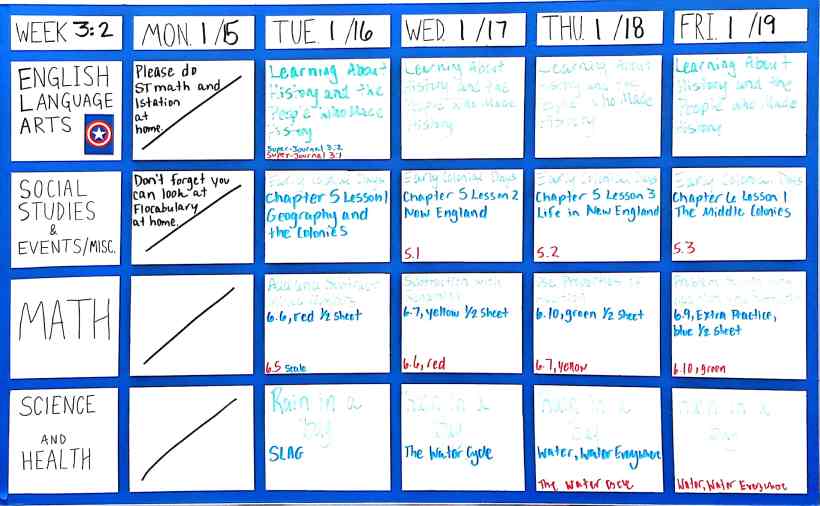 WEEK 3:2
MON. 1/15
TUE. 1/16
WED. 1/17
THU. 1/18
FRI. 1/19
ENGLISH
LANGUAGE
ARTS
Please do
ST math and
Istation
at
home.
Learning About
History and the
People who Made
History
Super-Journal 3:2
Super-Journal 3:1
Learning About
History and the
People who Made
History
Learning About
History and the
People who Made
History
Learning About
History and the
People who Made
History
SOCIAL
STUDIES
&
EVENTS/MISC.
Don't forget you
can look at
Flocabulary
at home.
Early Colonial Days
Chapter 5 Lesson 1
Geography and
the Colonies
Early Colonial Days
Chapter 5 Lesson 2
New England
5.1
Early Colonial Days
Chapter 5 Lesson 3
Life in New England
5.2
Early Colonial Days
Chapter 6 Lesson 1
The Middle Colonies
5.3
MATH
Add and Subtract
6.6, red 1/2 sheet
6.5 Scale
Subtraction with
6.7, yellow 1/2 sheet
6.6, red
Use
6.10, green 1/2 sheet
6.7, yellow
Problem
6.9, Extra Practice,
blue 1/2 sheet
6.10, green
SCIENCE
AND
HEALTH
Rain in a
Bag
SLAG
Rain in a
Bag
The Water Cycle
Rain in a
Bag
Water, Water Everywhere
The Water Cycle
Rain in a
Bag
Water, Water Everywhere